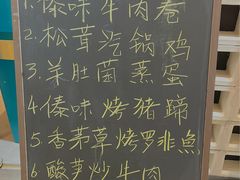 1.傣味牛肉卷
2.松茸汽锅鸡
3.羊肚菌蒸蛋
4.傣味烤猪蹄
5.香茅草烤罗非魚
6.酸笋炒牛肉